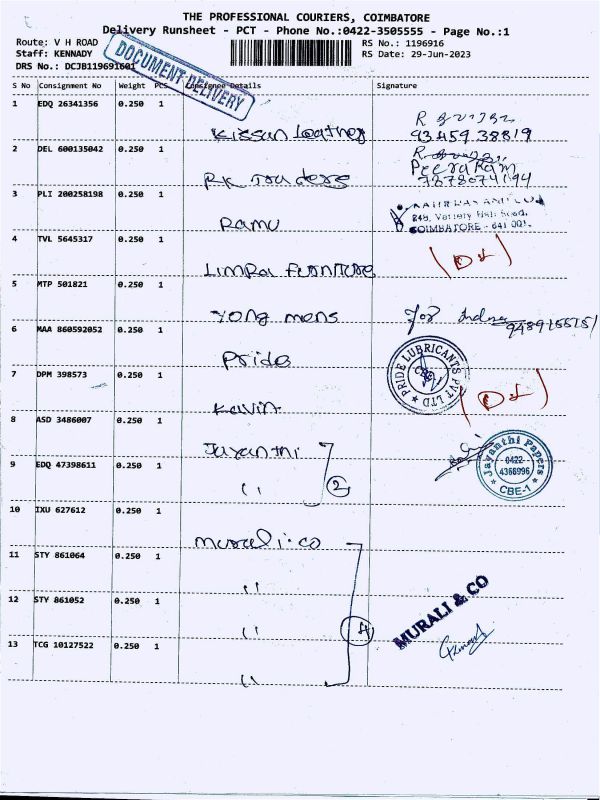 THE PROFESSIONAL COURIERS, COIMBATORE
Delivery Runsheet - PCT - Phone No.:0422-3505555 - Page No.:1
Route: V H ROAD
Staff: KENNADY
DRS No.: DCJB119691601
RS No.: 1196916
RS Date: 29-Jun-2023
DOCUMENT DELIVERY
S No Consignment No Weight PCS Consignee Details Signature
1 EDQ 26341356 0.250 1
Kissan Leather
93459 38819
2 DEL 600135042 0.250 1
RK Traders
Peeraram
3 PLI 200258198 0.250 1
Ramu
COIMBATORE - 641 001.
4 TVL 5645317 0.250 1
Limra Furniture
(D&L)
5 MTP 501821 0.250 1
Yong mens
for
6 MAA 860592052 0.250 1
Pride
PRIDE LUBRICANTS PVT LTD
CBE
7 DPM 398573 0.250 1
Kavin
8 ASD 3486007 0.250 1
Jayanthi
Jayanthi Papers
0422
4366996
CBE-1
9 EDQ 47398611 0.250 1
" 2
10 IXU 627612 0.250 1
Murali.co
11 STY 861064 0.250 1
"
12 STY 861052 0.250 1
" 4
MURALI & CO
13 TCG 10127522 0.250 1
"